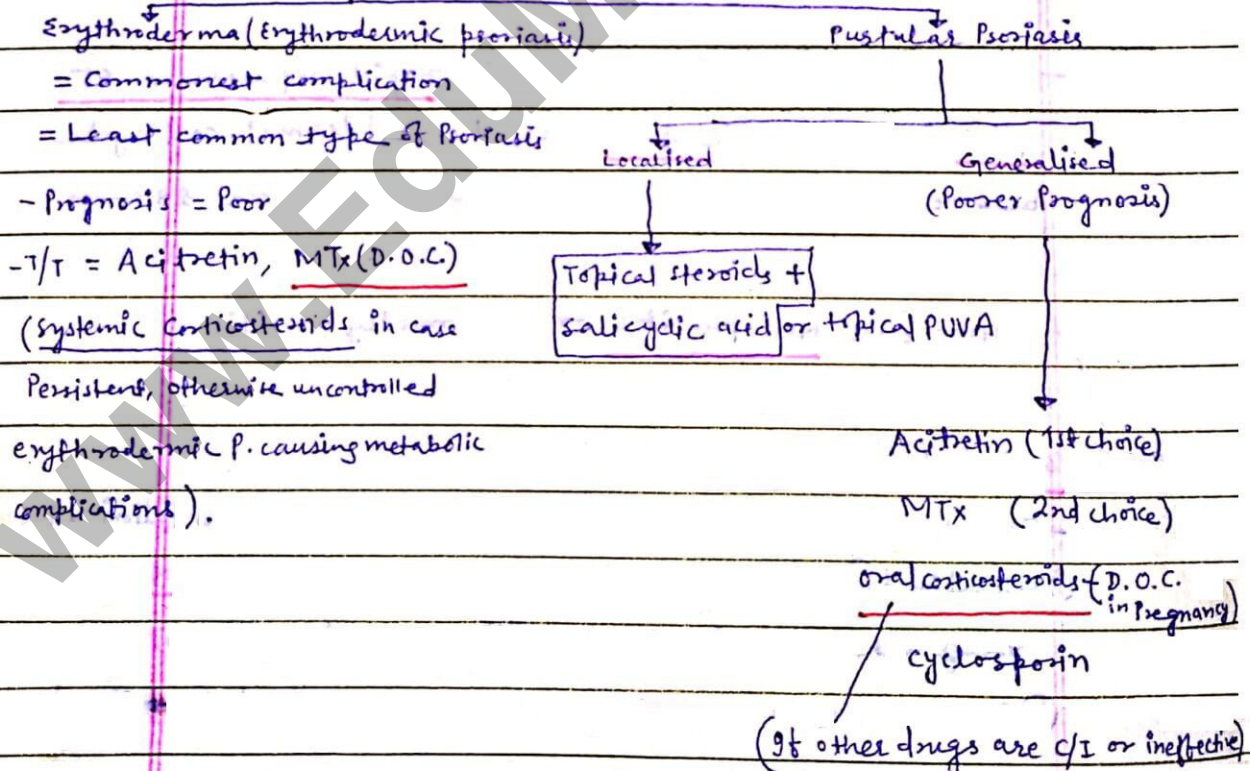 Erythroderma (Erythrodermic psoriasis)
= Commonest complication
= Least common type of Psoriasis
- Prognosis = Poor
- T/T = Acitretin, MTx (D.O.C.)
(systemic corticosteroids in case
Persistent, otherwise uncontrolled
erythrodermic P. causing metabolic
complications).
Pustular Psoriasis
Localised
Topical steroids +
salicyclic acid or topical PUVA
Generalised
(Poorer Prognosis)
Acitretin (1st choice)
MTx (2nd choice)
oral corticosteroids (D.O.C.
in Pregnancy)
cyclosporin
(If other drugs are C/I or ineffective)